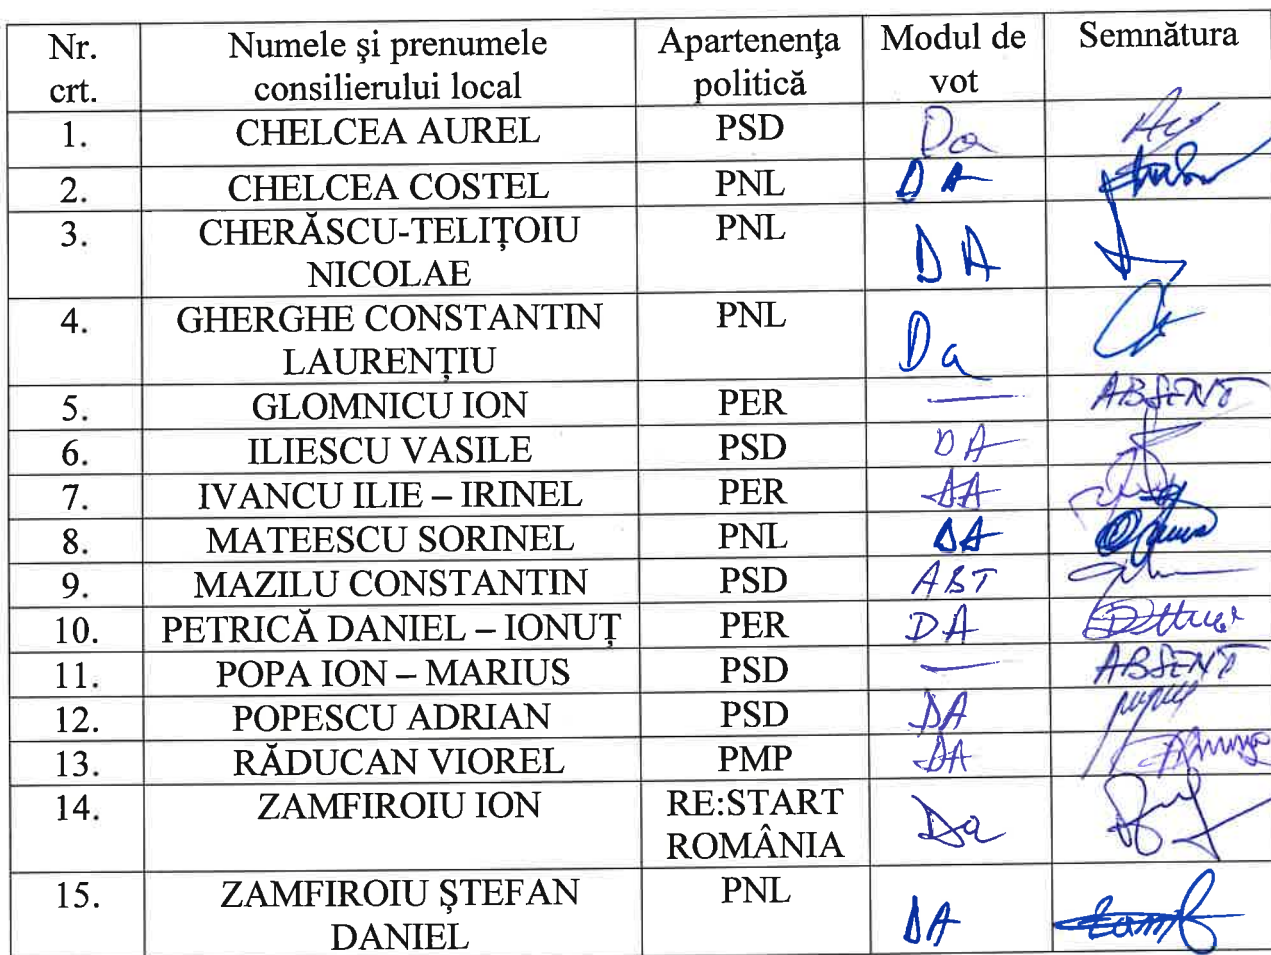 Nr. crt. Numele şi prenumele consilierului local Apartenenţa politică Modul de vot Semnătura
1. CHELCEA AUREL PSD Da
2. CHELCEA COSTEL PNL DA
3. CHERĂSCU-TELIȚOIU NICOLAE PNL DA
4. GHERGHE CONSTANTIN LAURENȚIU PNL Da
5. GLOMNICU ION PER — ABSENT
6. ILIESCU VASILE PSD DA
7. IVANCU ILIE – IRINEL PER DA
8. MATEESCU SORINEL PNL DA
9. MAZILU CONSTANTIN PSD ABT
10. PETRICĂ DANIEL – IONUȚ PER DA
11. POPA ION – MARIUS PSD — ABSENT
12. POPESCU ADRIAN PSD DA
13. RĂDUCAN VIOREL PMP DA
14. ZAMFIROIU ION RE:START ROMÂNIA Da
15. ZAMFIROIU ȘTEFAN DANIEL PNL DA